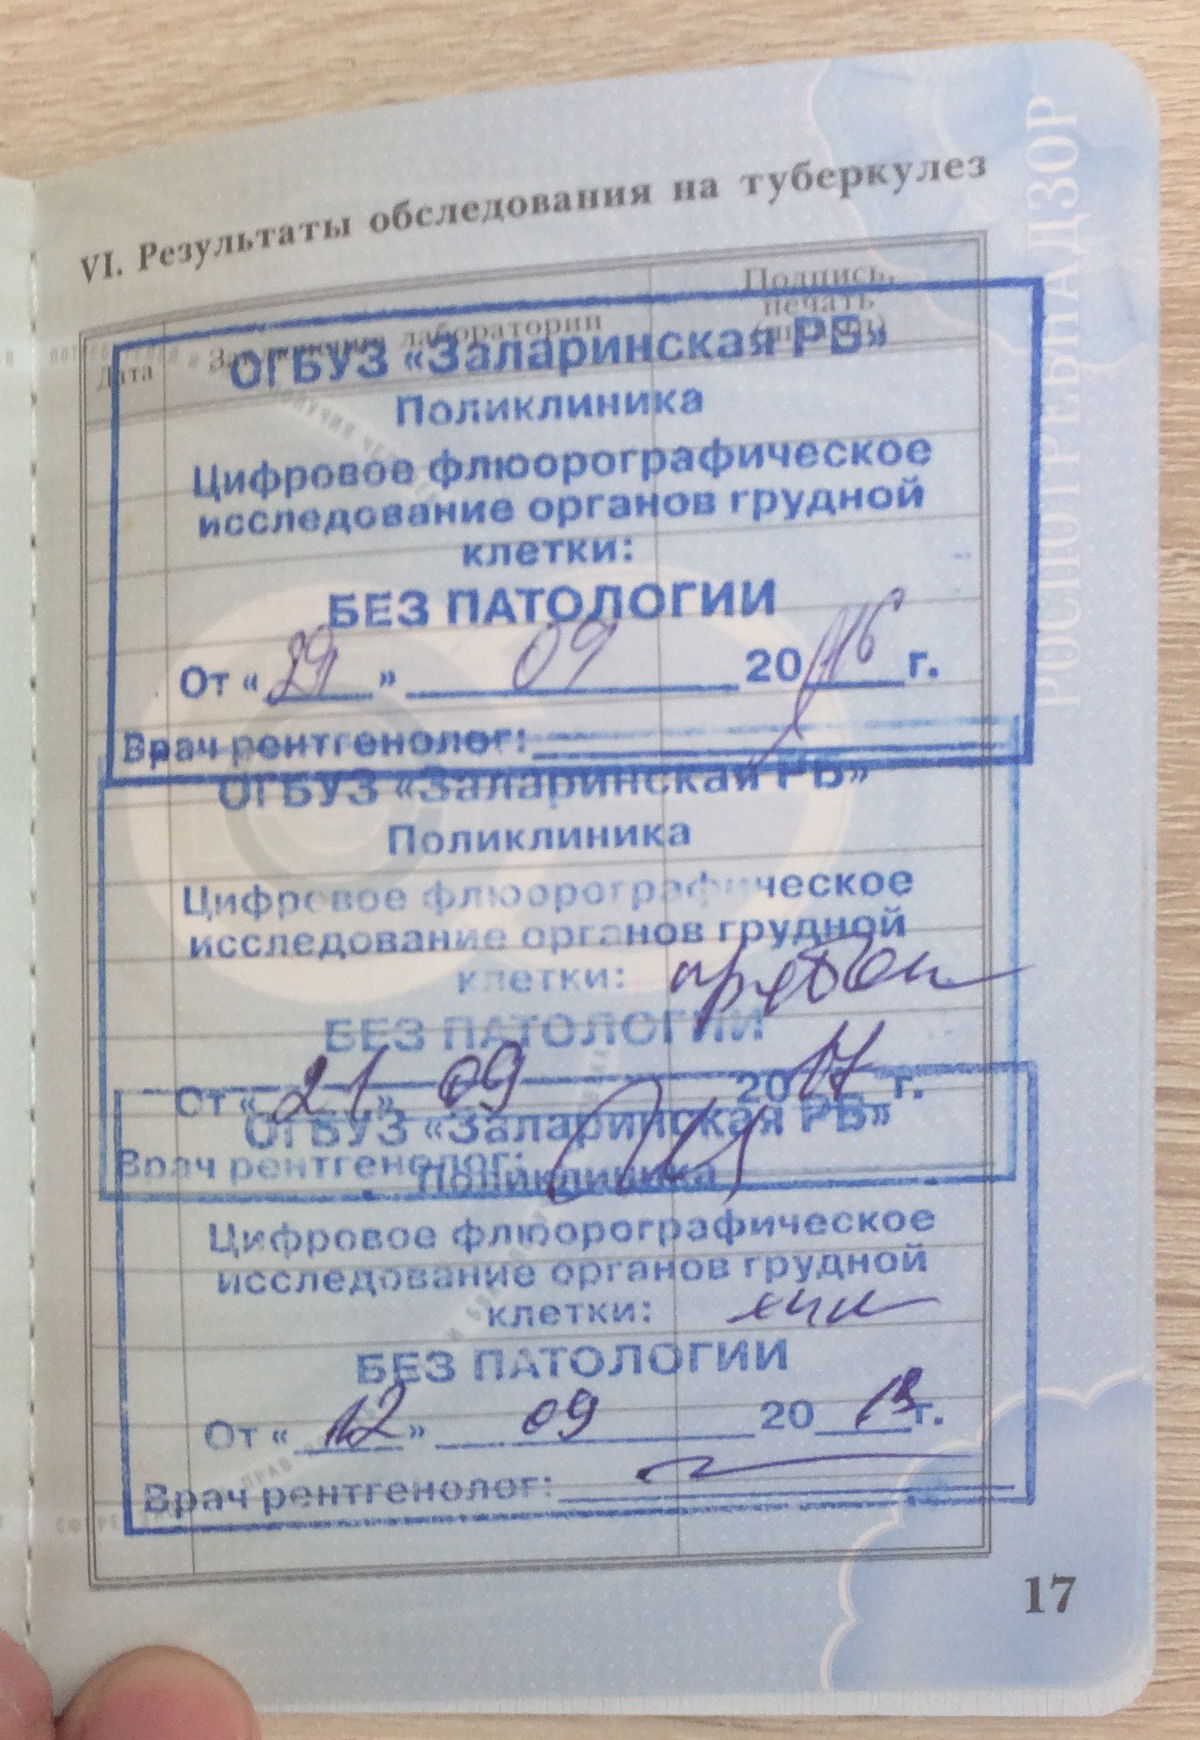 VI. Результаты обследования на туберкулез
Дата
Заключение лаборатории
Подпись,
печать
РОСПОТРЕБНАДЗОР
ОГБУЗ «Заларинская РБ»
Поликлиника
Цифровое флюорографическое
исследование органов грудной
клетки:
БЕЗ ПАТОЛОГИИ
От « 29 » 09 2016 г.
Врач рентгенолог:
ОГБУЗ «Заларинская РБ»
Поликлиника
Цифровое флюорографическое
исследование органов грудной
клетки:
БЕЗ ПАТОЛОГИИ
От « 21 » 09 2017 г.
Врач рентгенолог:
ОГБУЗ «Заларинская РБ»
Поликлиника
Цифровое флюорографическое
исследование органов грудной
клетки:
БЕЗ ПАТОЛОГИИ
От « 12 » 09 20 г.
Врач рентгенолог:
17